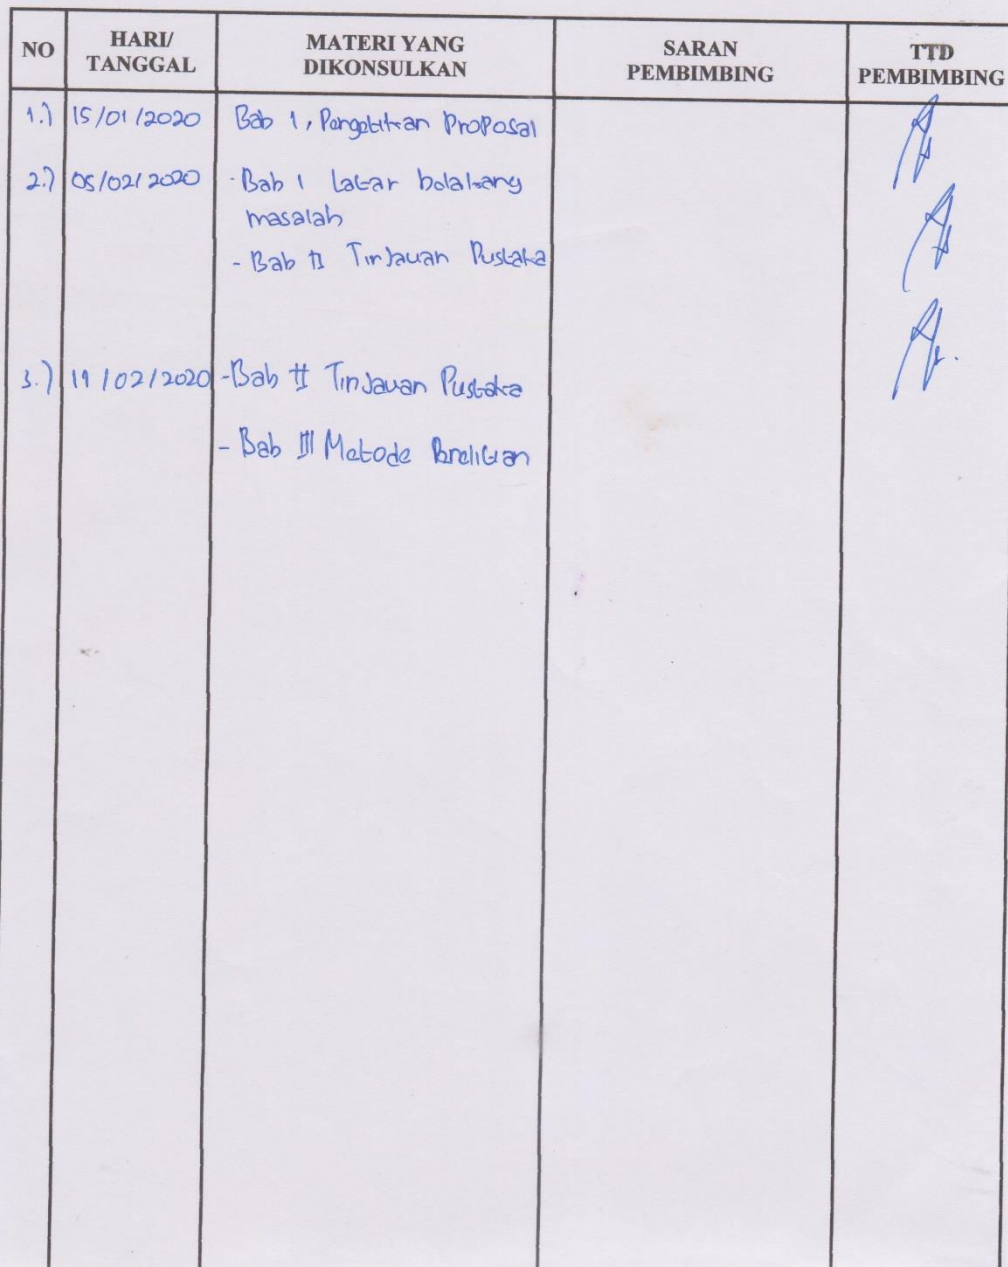 NO
HARI/
TANGGAL
MATERI YANG
DIKONSULKAN
SARAN
PEMBIMBING
TTD
PEMBIMBING
1.) 15/01/2020 Bab 1, Pengetikan Proposal
2.) 05/02/2020 - Bab 1 Latar belakang
masalah
- Bab II Tinjauan Pustaka
3.) 19/02/2020 - Bab II Tinjauan Pustaka
- Bab III Metode Penelitian